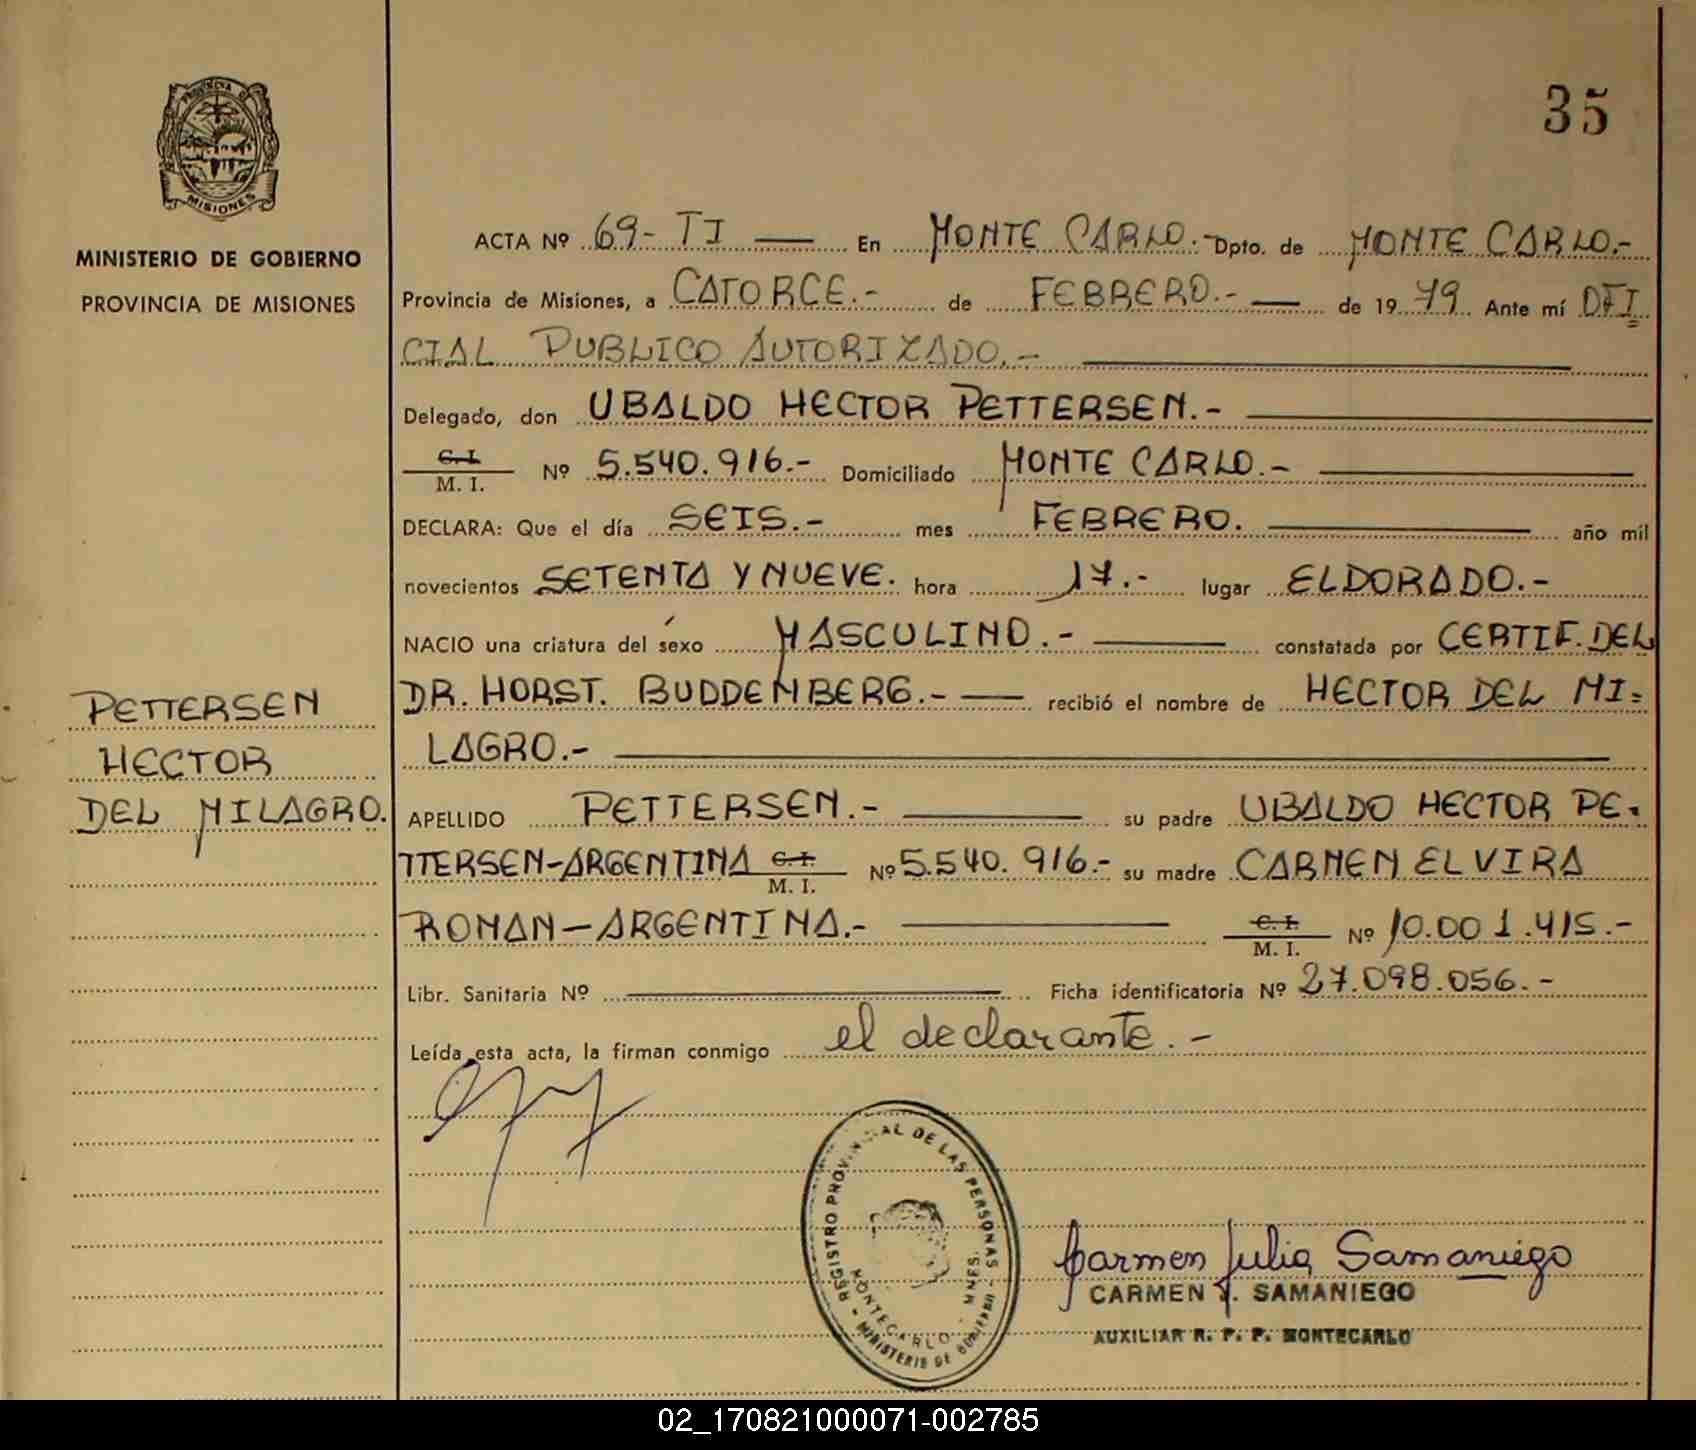 35
PROVINCIA DE
MISIONES
MINISTERIO DE GOBIERNO
PROVINCIA DE MISIONES
ACTA Nº 69- TI — En MONTE CARLO.- Dpto. de MONTE CARLO.-
Provincia de Misiones, a CATORCE.- de FEBRERO.- — de 1979 Ante mí OFI=
CIAL PUBLICO AUTORIZADO.-
Delegado, don UBALDO HECTOR PETTERSEN.-
C. I.
M. I. Nº 5.540.916.- Domiciliado MONTE CARLO.-
DECLARA: Que el día SEIS.- mes FEBRERO. año mil
novecientos SETENTA Y NUEVE. hora 17.- lugar ELDORADO.-
NACIO una criatura del sexo MASCULINO.- constatada por CERTIF. DEL
DR. HORST. BUDDEMBERG.- — recibió el nombre de HECTOR DEL MI=
LAGRO.-
PETTERSEN
HECTOR
DEL MILAGRO.
APELLIDO PETTERSEN.- su padre UBALDO HECTOR PE-
TTERSEN-ARGENTINA C. I. M. I. Nº 5.540.916.- su madre CARMEN ELVIRA
ROMAN-ARGENTINA.- C. I. M. I. Nº 10.001.415.-
Libr. Sanitaria Nº Ficha identificatoria Nº 27.098.056.-
Leída esta acta, la firman conmigo el declarante.-
REGISTRO PROVINCIAL DE LAS PERSONAS - MINISTERIO DE GOBIERNO -
MONTECARLO - MNES.
Carmen Julia Samaniego
CARMEN J. SAMANIEGO
AUXILIAR R. P. P. MONTECARLO
02_170821000071-002785